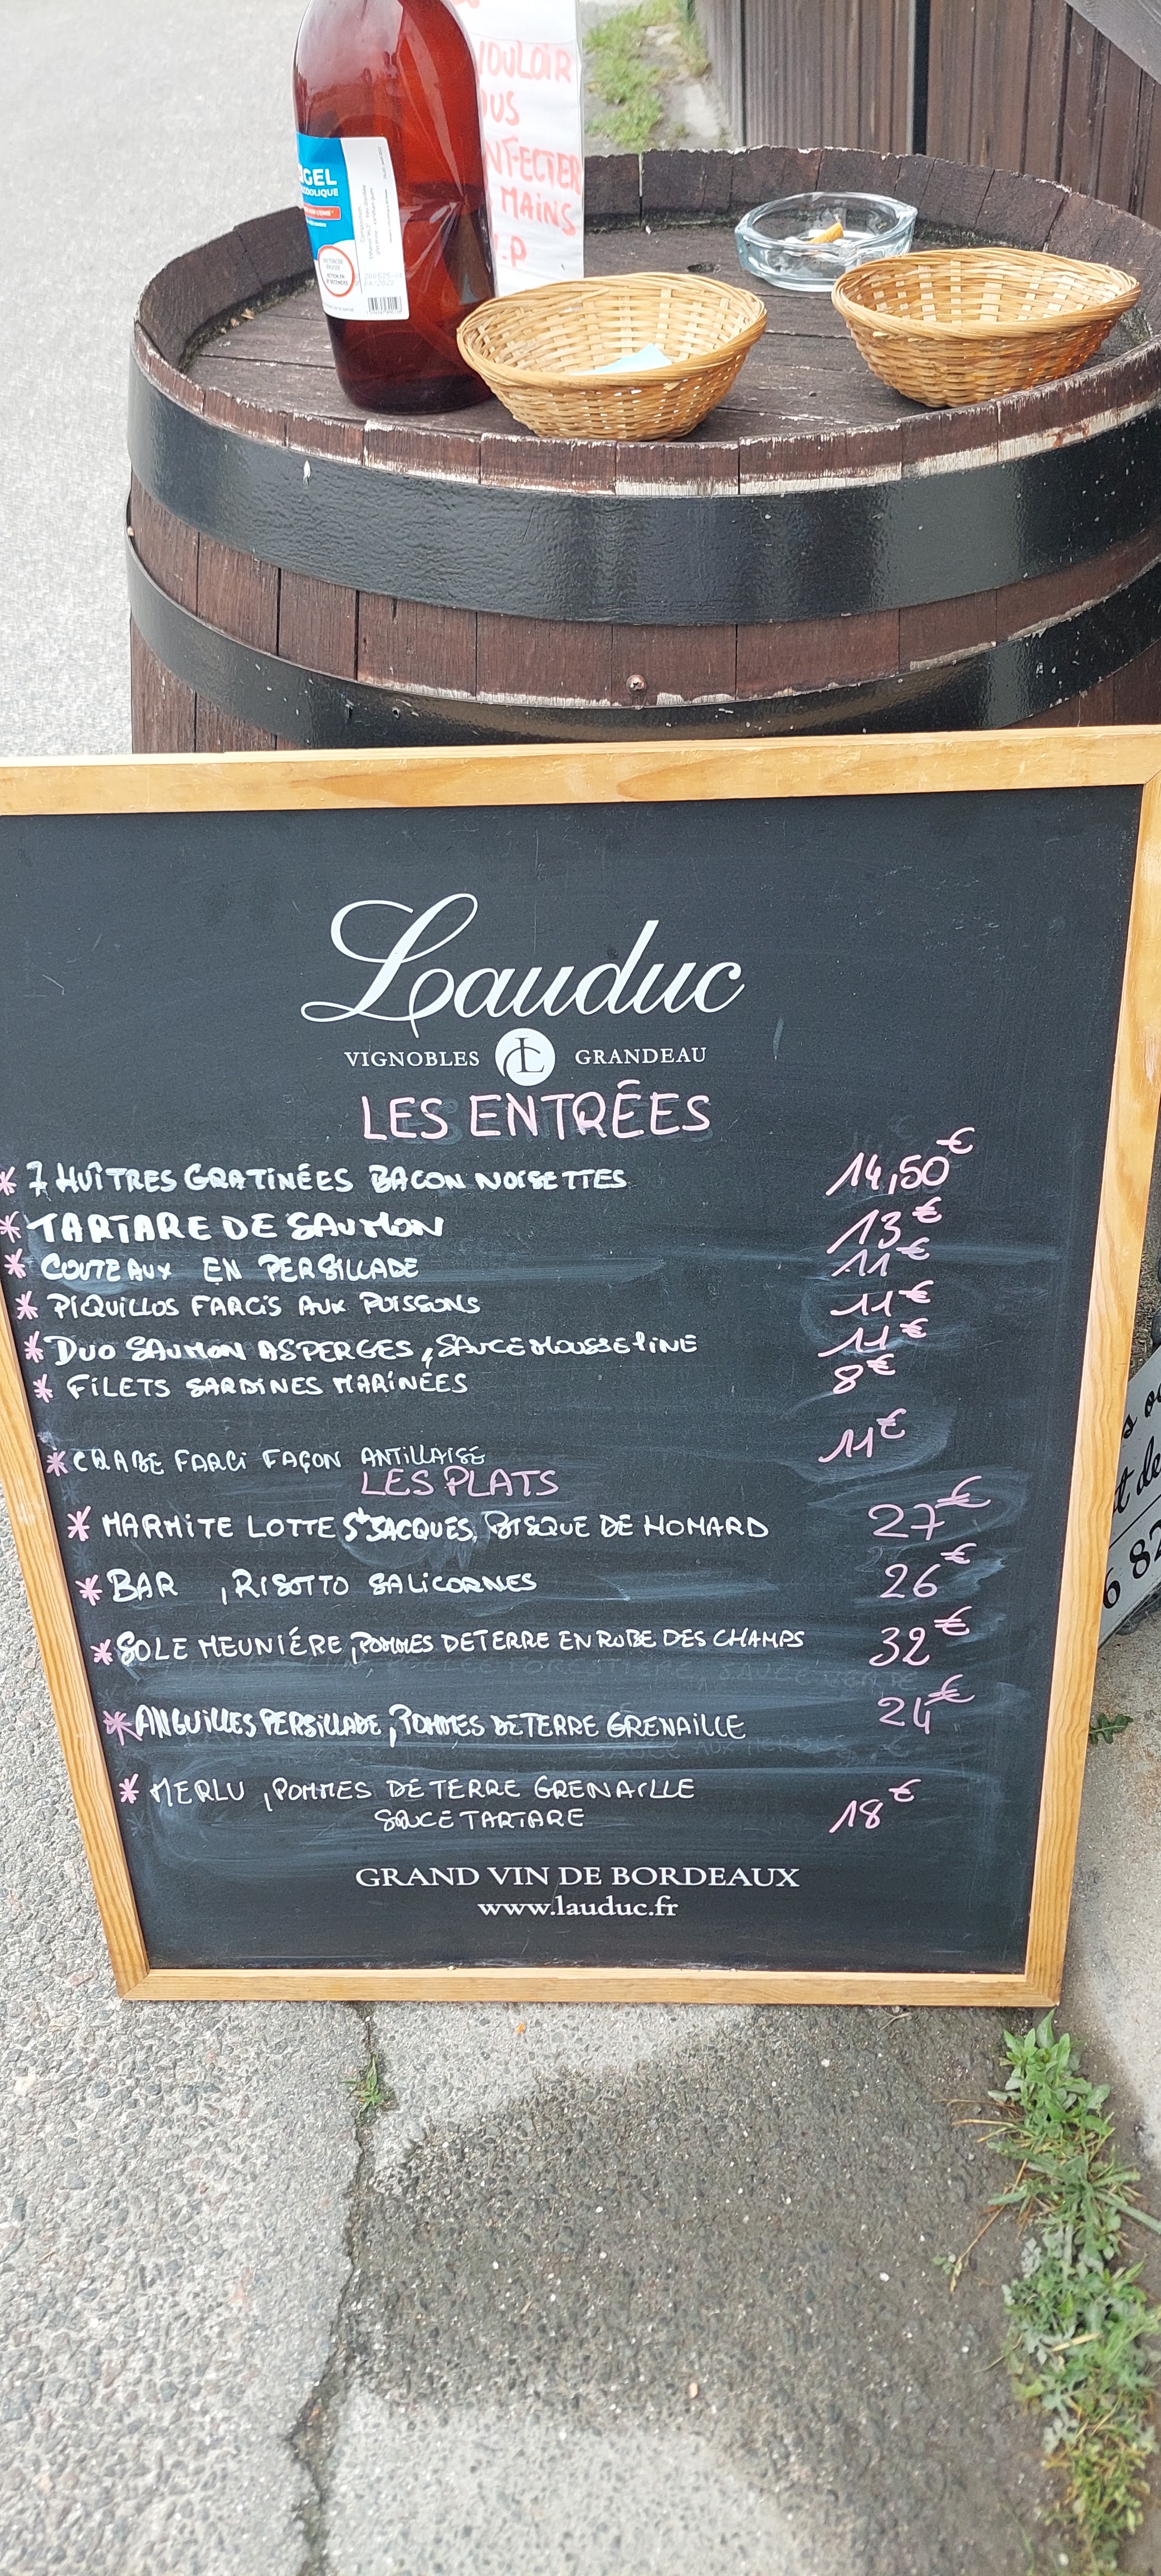 VOULOIR
MAINS
GEL
Lauduc
VIGNOBLES LC GRANDEAU
LES ENTRÉES
* 7 HUÎTRES GRATINÉES BACON NOISETTES 14,50€
* TARTARE DE SAUMON 13€
* COUTEAUX EN PERSILLADE 11€
* PIQUILLOS FARCIS AUX POISSONS 11€
* DUO SAUMON ASPERGES, SAUCE MOUSSELINE 11€
* FILETS SARDINES MARINÉES 8€
* CRABE FARCI FAÇON ANTILLAISE 11€
LES PLATS
* MARMITE LOTTE St JACQUES, BISQUE DE HOMARD 27€
* BAR , RISOTTO SALICORNES 26€
* SOLE MEUNIÉRE, POMMES DE TERRE EN ROBE DES CHAMPS 32€
* ANGUILLES PERSILLADE, POMMES DE TERRE GRENAILLE 24€
* MERLU, POMMES DE TERRE GRENAILLE
SAUCE TARTARE 18€
GRAND VIN DE BORDEAUX
www.lauduc.fr